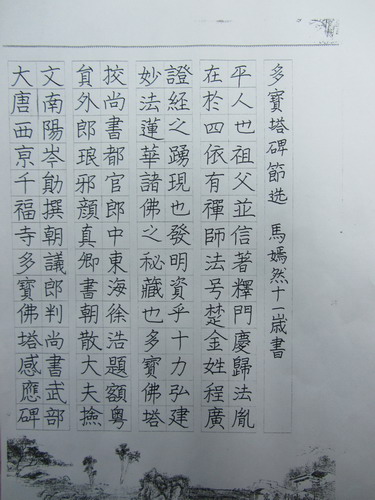 大唐西京千福寺多寶佛塔感應碑
文南陽岑勛撰朝議郎判尚書武部
貟外郎琅邪顏真卿書朝散大夫撿
挍尚書都官郎中東海徐浩題額粵
妙法蓮華諸佛之秘藏也多寶佛塔
證經之踴現也發明資乎十力弘建
在於四依有禪師法号楚金姓程廣
平人也祖父並信著釋門慶歸法胤
多寶塔碑節选 馬嫣然十一歲書